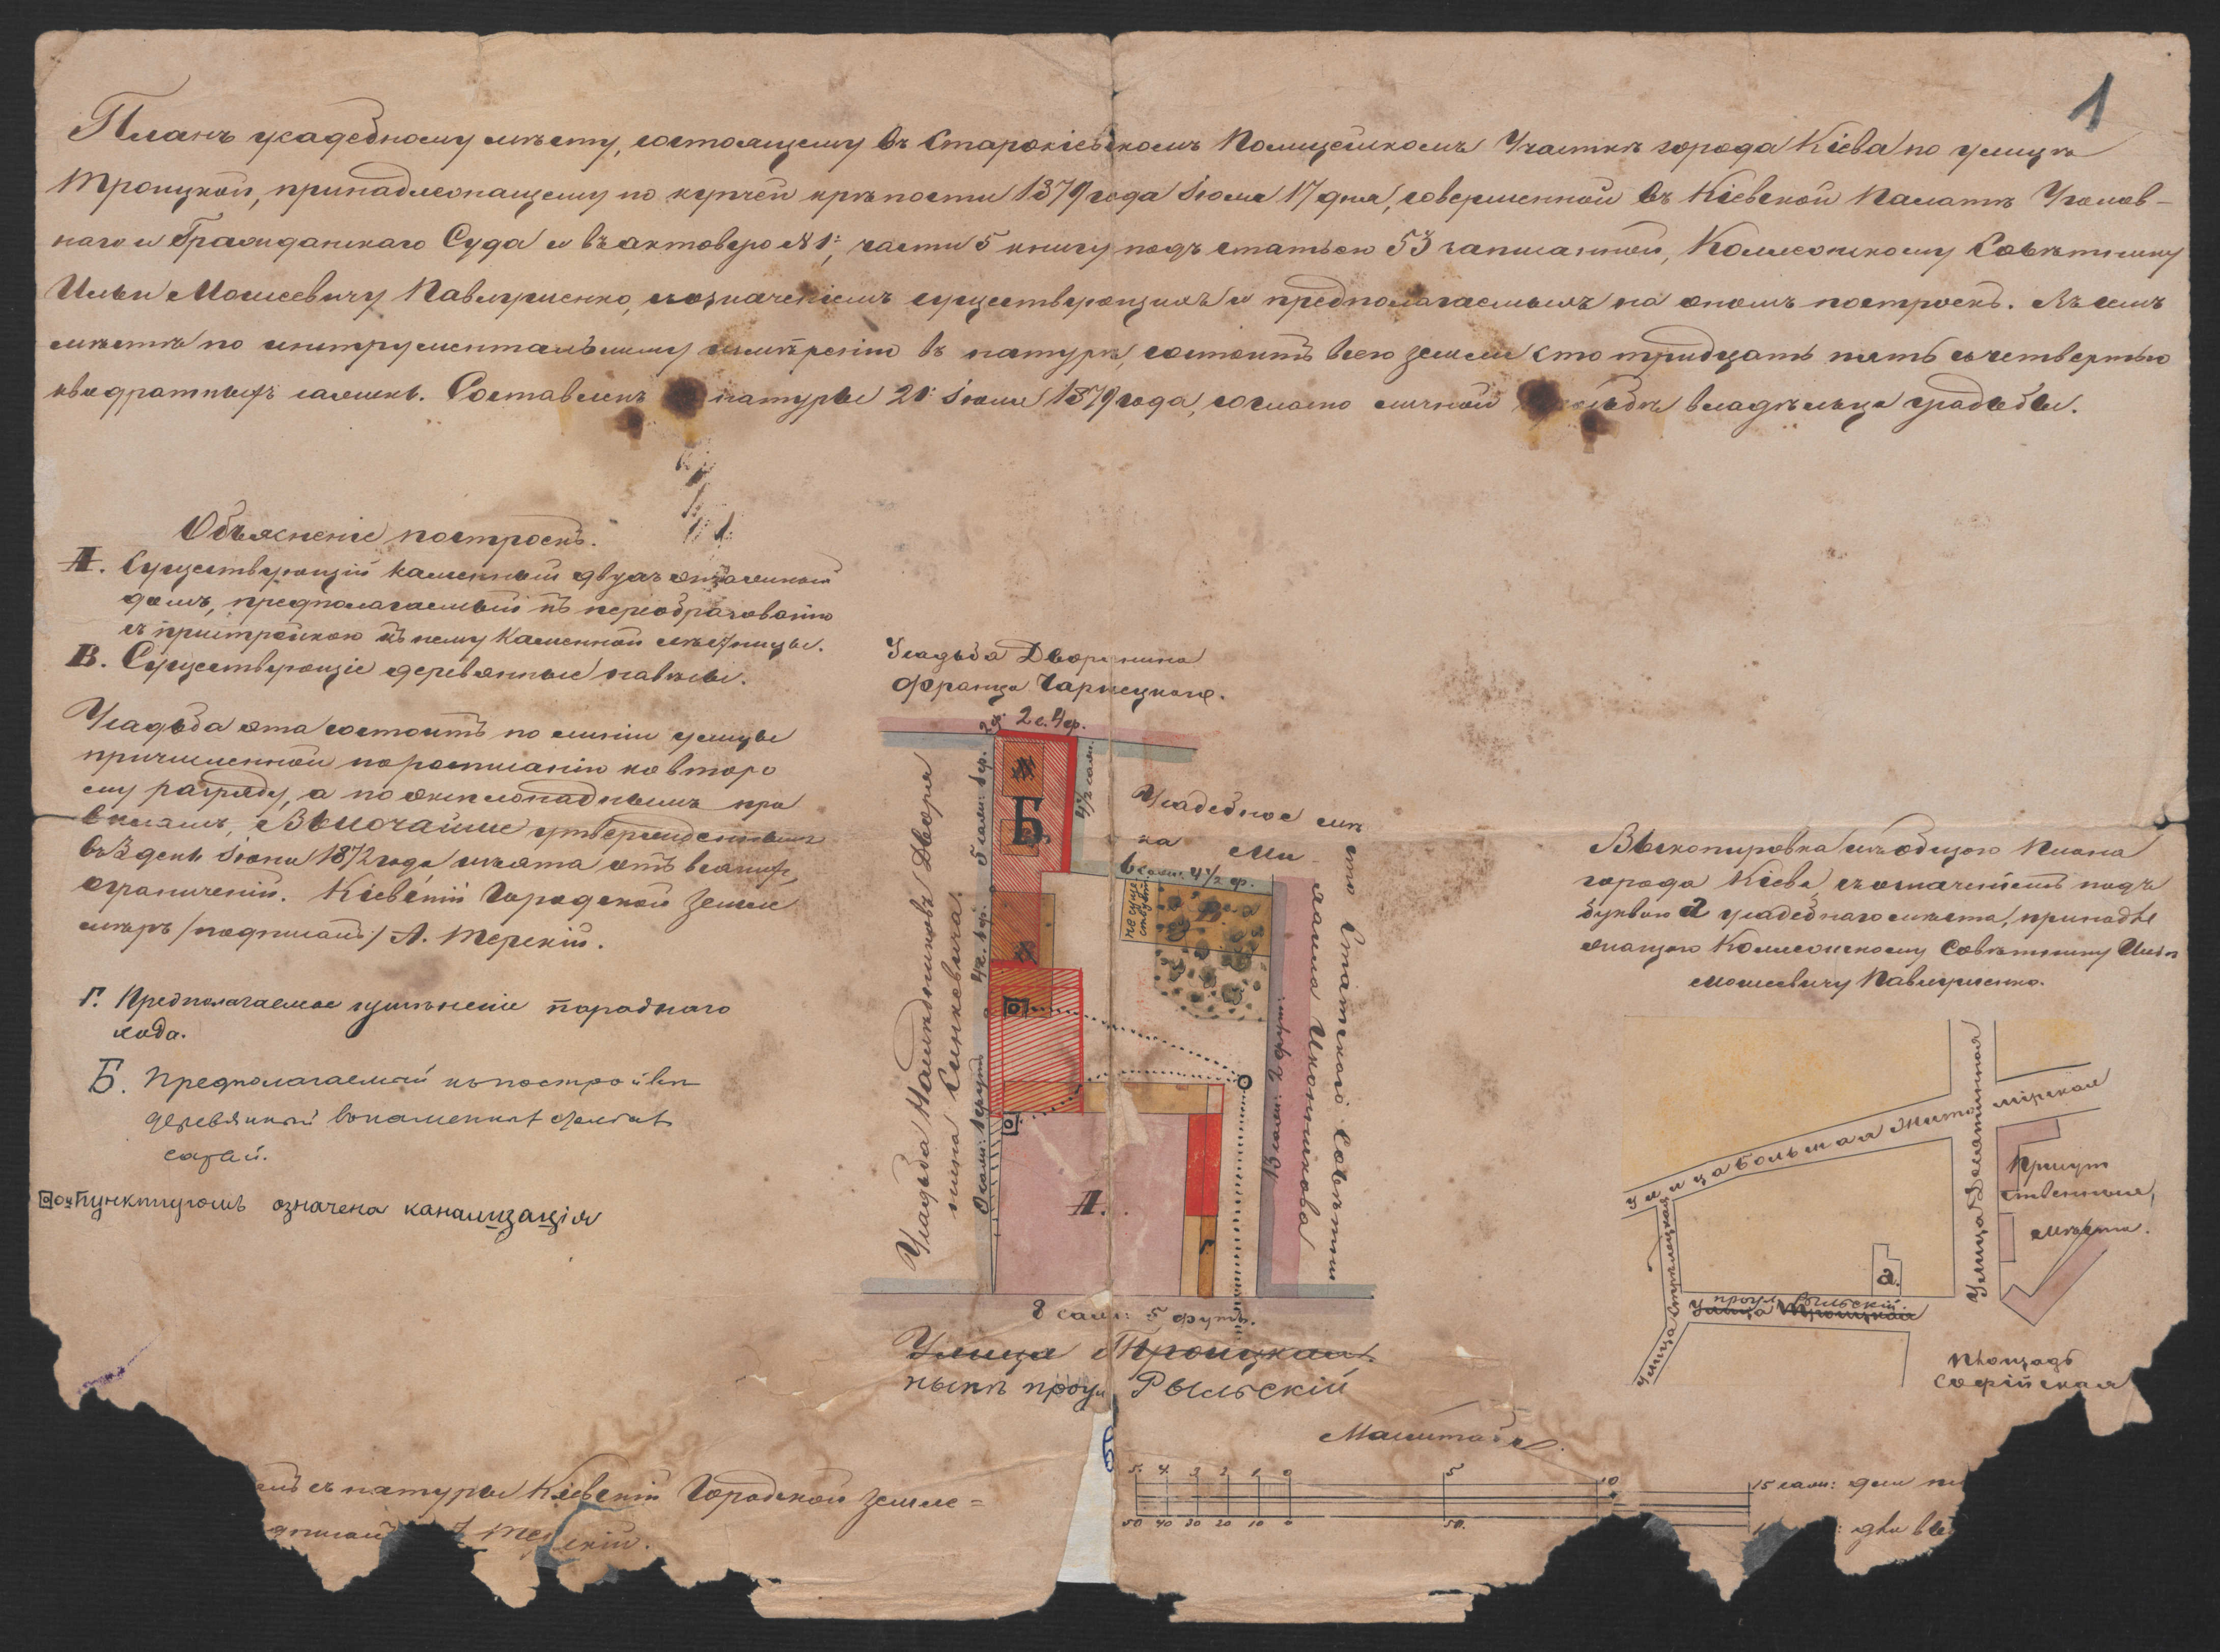 1
Планъ усадебному мѣсту, состоящему въ Старокіевскомъ Полицейскомъ Участкѣ города Кіева по улицѣ
Троицкой, принадлежащему по купчей крѣпости 1879 года Іюля 17 дня, совершенной въ Кіевской Палатѣ Уголов-
наго и Гражданскаго Суда и въ актовую № 1й, части 5 книгу подъ статьею 53 записанной, Коллежскому Совѣтнику
Ильи Моисеевичу Павлушенко, съ означеніемъ существующихъ и предполагаемыхъ на ономъ построекъ. Въ семъ
мѣстѣ по инструментальному измѣренію въ натурѣ, состоитъ всего земли сто тридцать пять съ четвертью
квадратныхъ саженъ. Составленъ натуры 21 Іюля 1879 года, согласно личной владѣльца усадьбы.
Объясненіе построекъ.
А. Существующій каменный двухъ этажный
домъ, предполагаемый къ переобразованію
съ пристройкою къ нему каменной лѣстницы.
В. Существующіе деревянные навѣсы.
Усадьба эта состоитъ по линіи улицы
причисленной по росписанію ко второ
му разряду, а по эксплоападнымъ пра
виламъ, Высочайше утвержденнымъ
въ 3 день Іюня 1872 года изъята отъ всякихъ
ограниченій. Кіевскій Городской Земле
мѣръ /подписалъ/ А. Терскій.
Г. Предполагаемое уширеніе параднаго
хода.
Б. Предполагаемый къ постройкѣ
деревянный
сарай.
Пунктиромъ означена канализація
Усадьба Дворянина
Франца Чарнецкаго.
2 ф. 2 с. 4 ф.
Б.
4½ саж.
5 саж. 1 ф.
Усадьба Наслѣдниковъ Дворя
нина Синкевича.
Усадебное мѣ
сто Статскаго Совѣтни
ка Ми
хаила Иконникова
6 саж. 4½ ф.
не суще
ствуетъ
А.
Г.
8 саж: 5 футъ.
Улица Троицкая.
нынѣ проул Рыльскій
Масштабъ.
5. 4. 3 2 1 0 5 10 15 саж: для
50 40 30 20 10 0 50. для
Выкопировка изъ общаго плана
города Кіева, съ означеніемъ подъ
буквою а усадебнаго мѣста, принадле
жащаго Коллежскому Совѣтнику Ильи
Моисеевичу Павлушенко.
Улица Большая Житомірская
Улица Десятинная
Улица Стрѣлецкая
Присут
ственныя
мѣста.
а.
проул. Рыльскій.
Улица Троицкая
Площадь
Софійская
съ натуры Кіевскій Городской Земле=
Терскій.